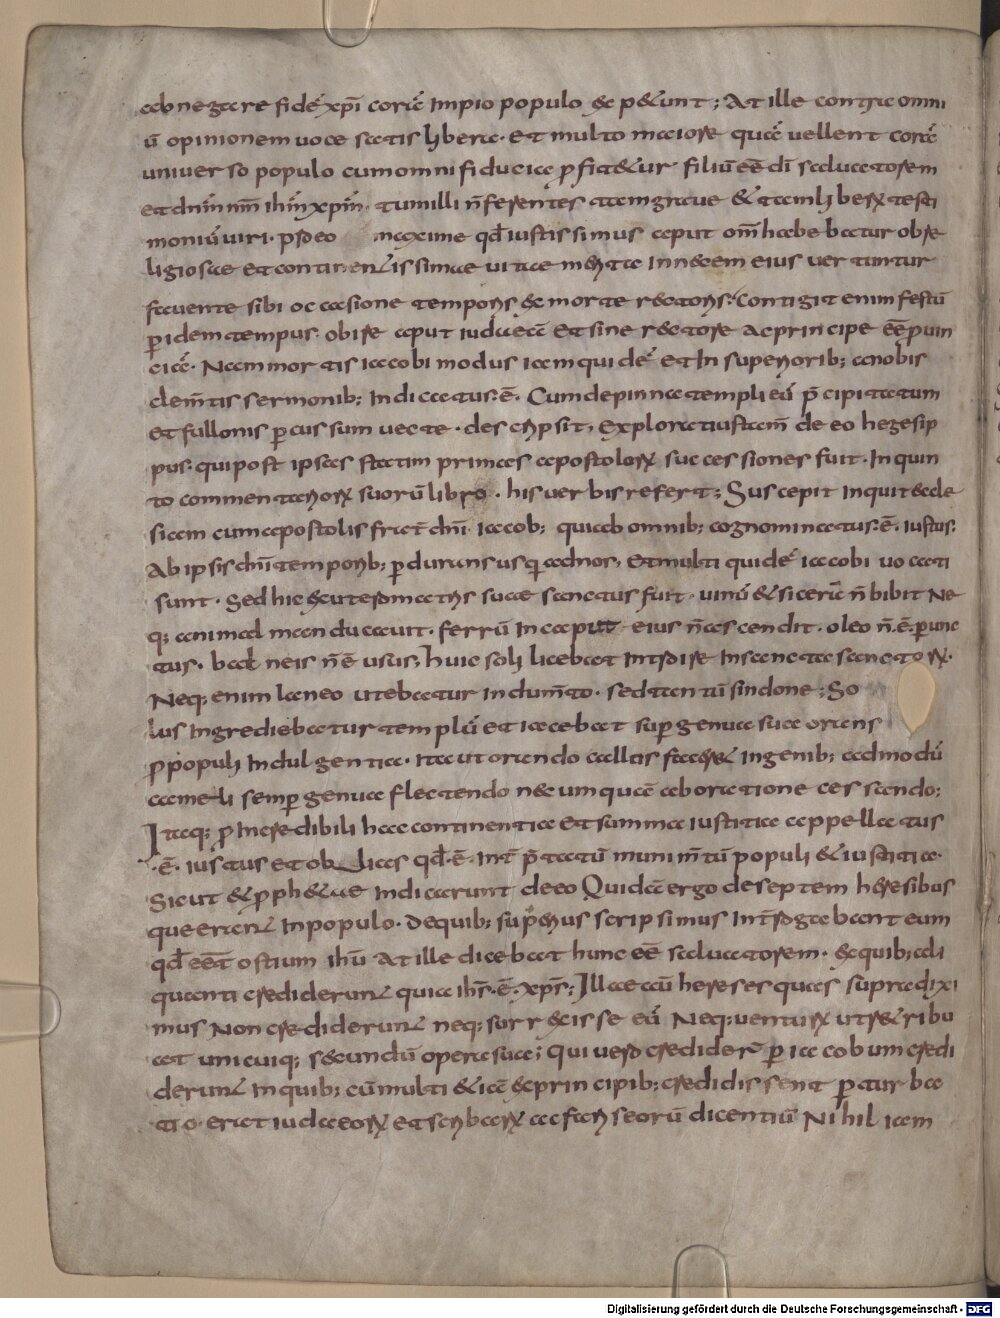 abnegare fidē xp̄i corā Impio populo & p&unt; At ille contra omni
ū opinionem uoce satis lybera· Et multo maiore quā uellent corā
uniuerso populo cum omni fiducia ꝓfit&ur filiū eē dī saluatorem
et dn̄m nr̄m ihm̄ xp̄m· tum illi n̄ ferentes tam graue & tam lyberꝝ testi
moniū uiri· pro eo maxime qd̄ iustissimus aput om̄ habebatur ob re
ligiosae et continentissimae uitae merita In necem eius uertuntur
fauente sibi occasione temporis & morte rectoris: Contigit enim festū
ꝑ idem tempus· obire aput iudaeā Et sine rectore ac principe eē ꝓuin
ciā· Nam mortis iacobi modus iam quidē et In superiorib; a nobis
clem̄tis sermonib; Indicatus· ē· Cum de pinna templi eū p̄cipitatum
et fullonis ꝑcussum uecte· descripsit, explorativstām de eo hegesip
pus· qui post ipsas statim primas apostolorꝝ successiones fuit· In quin
to commentariorꝝ suorū libro· his uerbis refert; Suscepit inquit & ecle
siam cum apostolis frat̄ dn̄i· iacob; qui ab omnib; cognominatus· ē· iustus·
Ab ipsis dn̄i temporib; ꝑdurans usq; ad nos, Et multi quidē iacobi uocati
sunt· Sed hic & utero matris suae sanctus fuit· uinū & sicerā n̄ bibit Ne
q; animal manducauit· ferrū In caput eius n̄ ascendit· oleo n̄· ē· ꝑunc
tus· balneis n̄ ē usus, huic soli licebat Introire In sancta sanctorꝝ·
Neq; enim laneo utebatur Indum̄to· sed tantū sindone; So
lus Ingrediebatur templū et iacebat suꝑ genua sua orans
ꝓ populi Indulgentia· Ita ut orando callos faceret In genib; ad modū
cameli semꝑ genua flectendo nec umquā ab oratione cessando;
Itaq; ꝓ Incredibili hac continentia et summa iustitia appellatus
·ē· iustus et oblias qd̄· ē· Int̄p̄tatū munim̄tū populi & iustitia·
Sicut & ꝓph&ae Indicarunt de eo Quidā ergo de septem heresibus
que erant In populo· De quib; suꝑius scripsimus Int̄rogabant eum
qd̄ eēt ostium ihū At ille dicebat hunc eē saluatorem· & quib; ali
quanti crediderunt quia ihs̄· ē· xp̄s; Illae aū hereses quas sup̄ dixi
mus Non crediderunt neq; surrexisse eū Neq; venturū ut r&ribu
at unicuiq; secundū opera sua; Qui uero crediderū ꝑ iacobum credi
derunt In quib; cū multi & iā & principib; credidissent ꝑturba
tio erat iudaeorꝝ et scribarꝝ ac fariseorū dicentiū Nihil iam
Digitalisierung gefördert durch die Deutsche Forschungsgemeinschaft · DFG